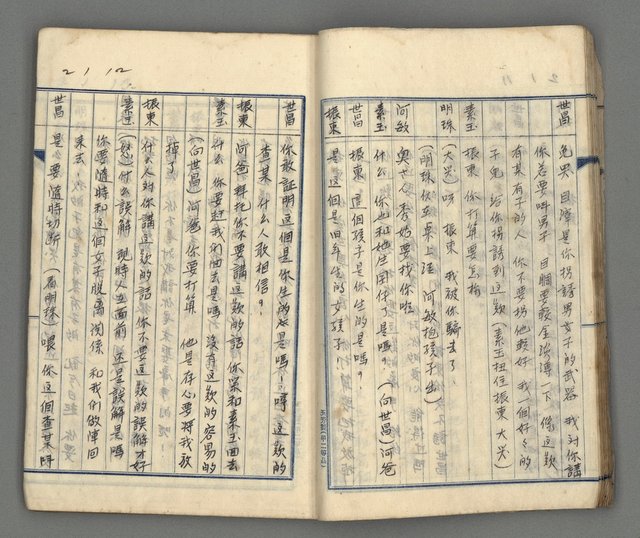 世昌 免哭 目滓是你拐誘男女子的武器 我对你講
你若要叫男子 目睭要展金淡薄一下 像这款
有某有子的人 你不要拐他較好 我一個好好的
子兒 給你拐誘到这款(素玉扭住振東大哭)
素玉 振東 你打算要怎樣
明珠 (大哭)呀 振東 我被你騙去了
(明珠伏在桌上泣 阿敏抱孩子出)
阿敏 奥サン 秀奶要找你啦
素玉 什么 你也和她生囝仔了是嗎?(向世昌)阿爸
世昌 振東 這個孩子是你生的是嗎?
振東 是 这個是旧年生的女孩子
世昌 你敢証明这個是你生的是嗎!嗎 这款的
查某 什么人敢相信?
振東 阿爸 拜托你不要講这款的話 你緊和素玉回去
素玉 什么 你要赶我們回去是嗎?没有这款的容易的
(向世昌)阿爸 你要打算 他是存心要将我放
掉了
振東 什么人对你講这款的話 你不要这款的誤解才好
素玉 (怒)什么誤解 現時人在面前 还是誤解是嗎
你要随時和这個女子脱離関係 和我們做陣回
来去
世昌 是 要随時切断(看明珠)喂 你这個查某